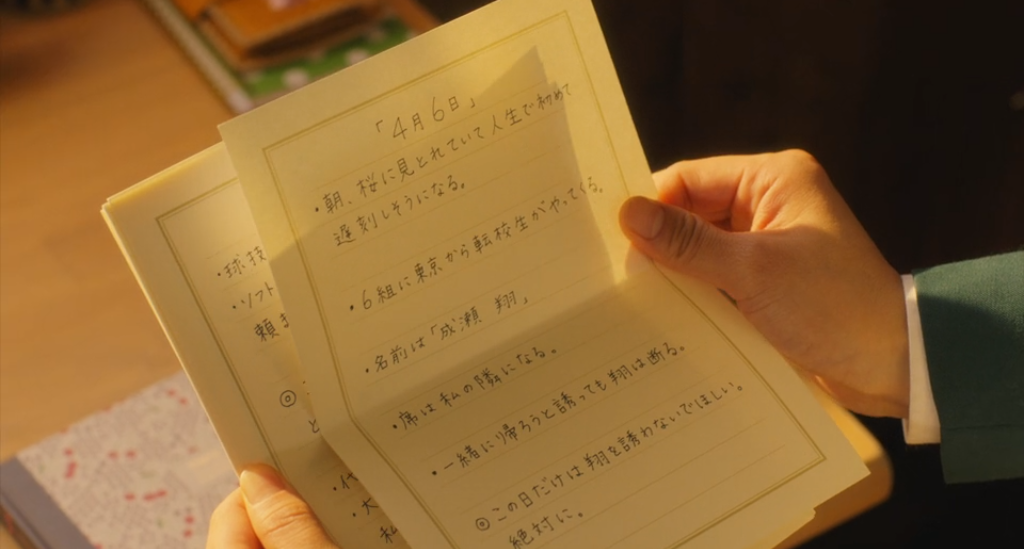 「4月6日」
・朝、桜に見とれていて人生で初めて
遅刻しそうになる。
・6組に東京から転校生がやってくる。
・名前は「成瀬 翔」
・席は私の隣になる。
・一緒に帰ろうと誘っても翔は断る。
◎この日だけは翔を誘わないでほしい。
絶対に。
・球技
・ソフト
頼ま
◎
と
・代
・大
私